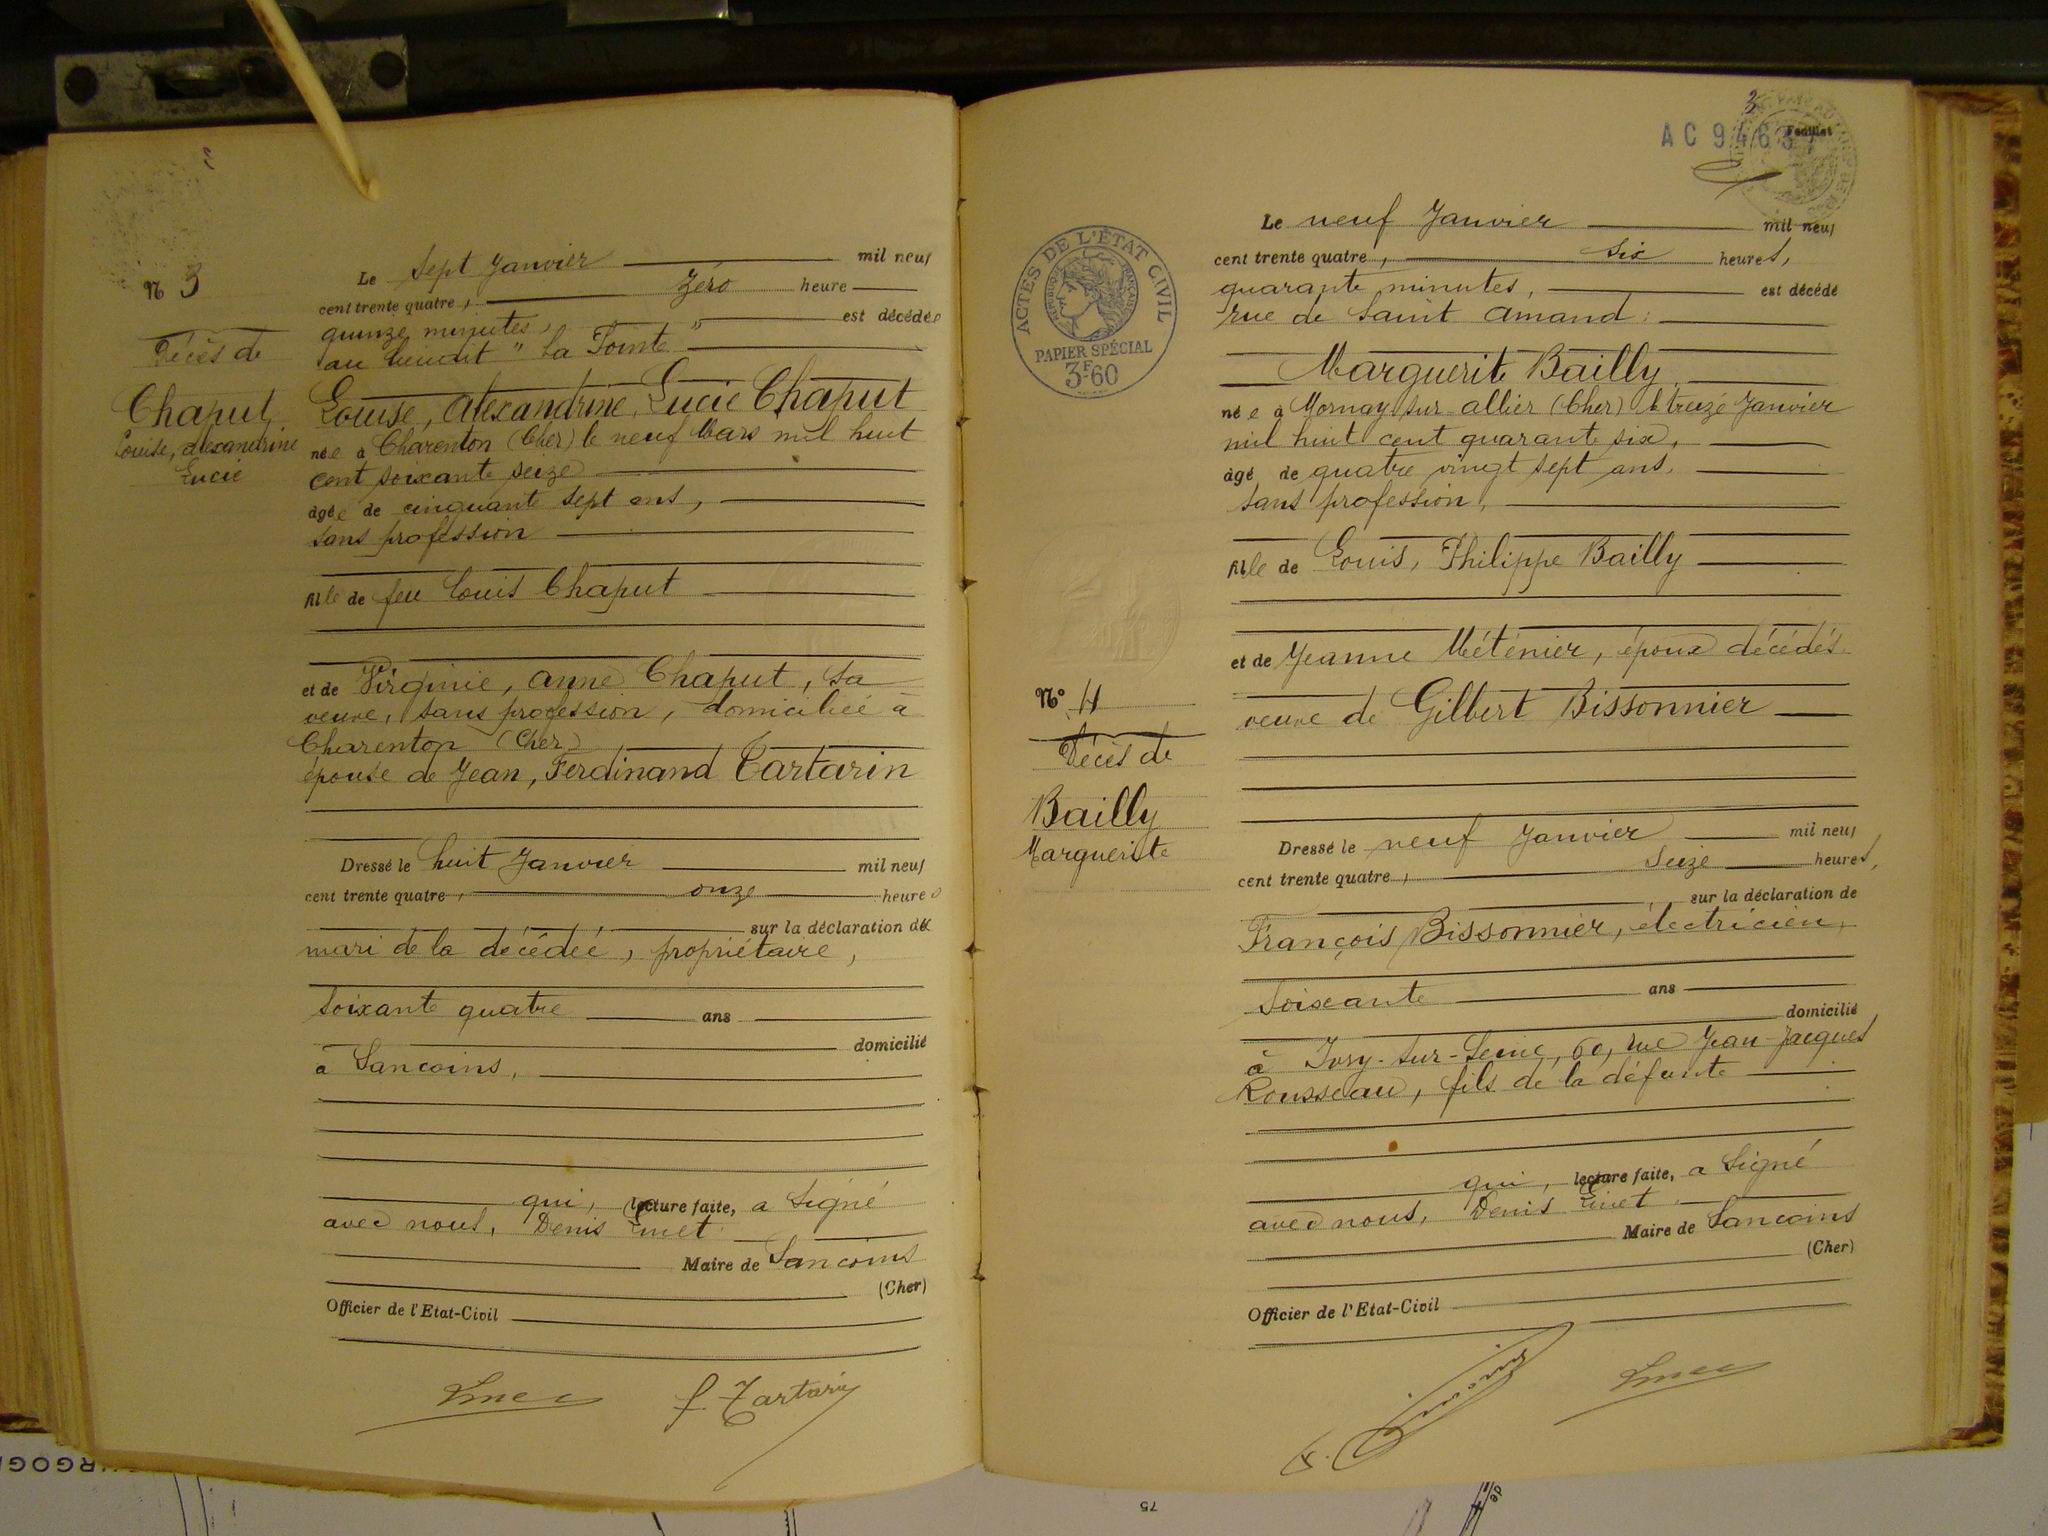 N 3
Décès de
Chaput
Louise, Alexandrine
Lucie
Le sept Janvier mil neuf
cent trente quatre, zéro heure
quinze minutes, est décédée
au lieudit "La Pointe"
Louise, Alexandrine, Lucie Chaput
née à Charenton (Cher) le neuf Mars mil huit
cent soixante seize
âgée de cinquante sept ans,
sans profession
fille de feu Louis Chaput
et de Virginie, Anne Chaput, sa
veuve, sans profession, domiciliée à
Charenton (Cher)
épouse de Jean, Ferdinand Tartarin
Dressé le huit Janvier mil neuf
cent trente quatre, onze heures
sur la déclaration du
mari de la décédée, propriétaire,
soixante quatre ans
domicilié
à Sancoins,
qui, lecture faite, a signé
avec nous, Denis
Maire de Sancoins
(Cher)
Officier de l'Etat-Civil
f. Tartarin
3
AC 9463
Feuillet
ACTES DE L'ÉTAT CIVIL
RÉPUBLIQUE FRANÇAISE
PAPIER SPÉCIAL
3F60
N° 4
Décès de
Bailly
Marguerite
Le neuf Janvier mil neuf
cent trente quatre, six heures,
quarante minutes, est décédé
rue de Saint Amand:
Marguerite Bailly
née à Mornay sur Allier (Cher) le treize Janvier
mil huit cent quarante six,
âgé de quatre vingt sept ans,
sans profession,
fille de Louis, Philippe Bailly
et de Jeanne Méténier, époux décédés.
veuve de Gilbert Bissonnier
Dressé le neuf Janvier mil neuf
cent trente quatre, seize heures,
sur la déclaration de
François Bissonnier, électricien,
soixante ans
domicilié
à Ivry-sur-Seine, 60, rue Jean-Jacques
Rousseau, fils de la défunte
qui, lecture faite, a signé
avec nous, Denis
Maire de Sancoins
(Cher)
Officier de l'Etat-Civil
75